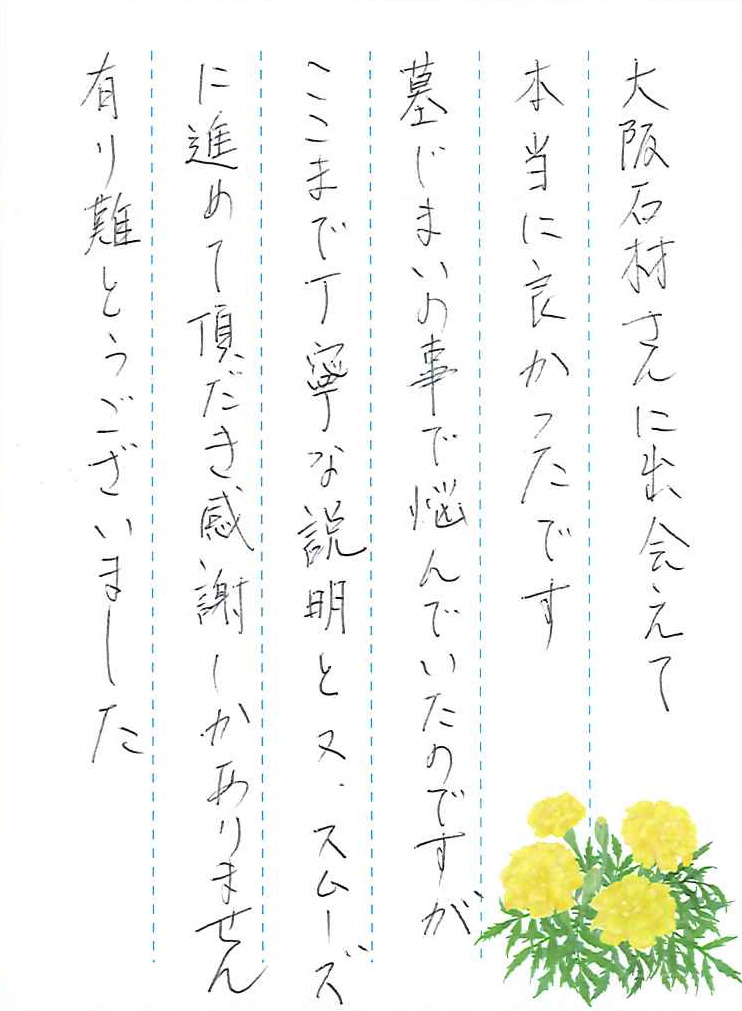 大阪石材さんに出会えて
本当に良かったです
墓じまいの事で悩んでいたのですが
ここまで丁寧な説明と又、スムーズ
に進めて頂だき感謝しかありません
有り難とうございました